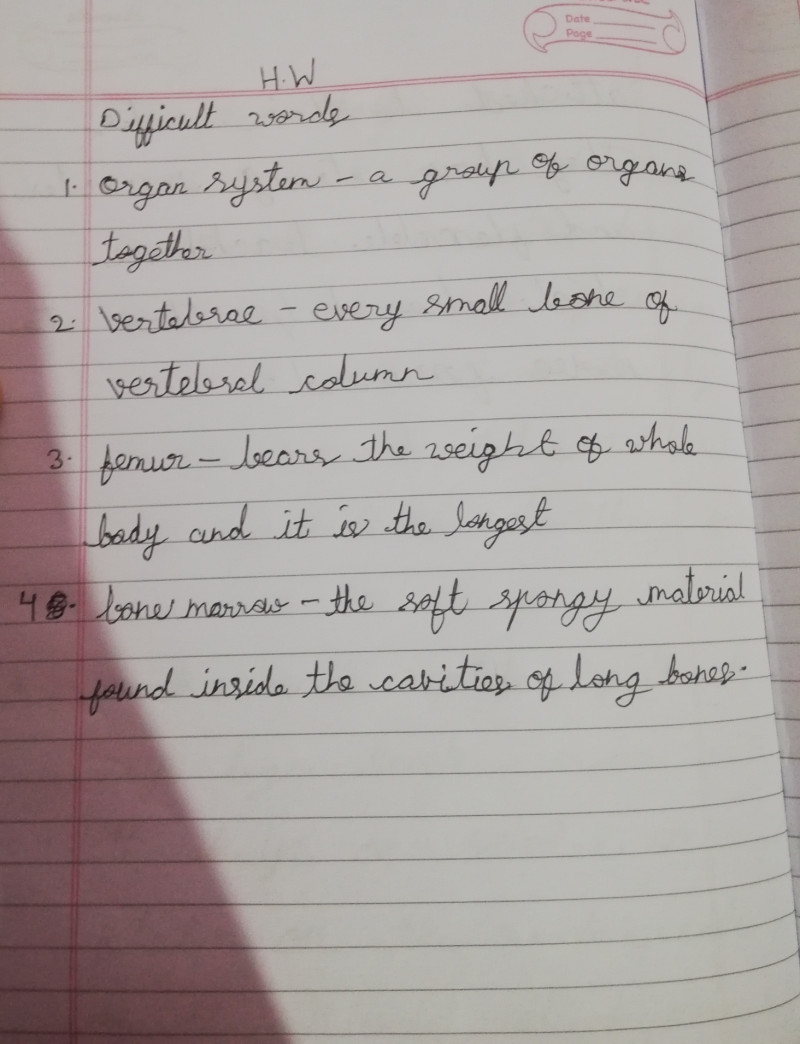 Date
Page
H.W
Difficult words
1. organ system - a group of organs
together
2. vertebrae - every small bone of
vertebral column
3. femur - bears the weight of whole
body and it is the longest
4. bone marrow - the soft spongy material
found inside the cavities of long bones.